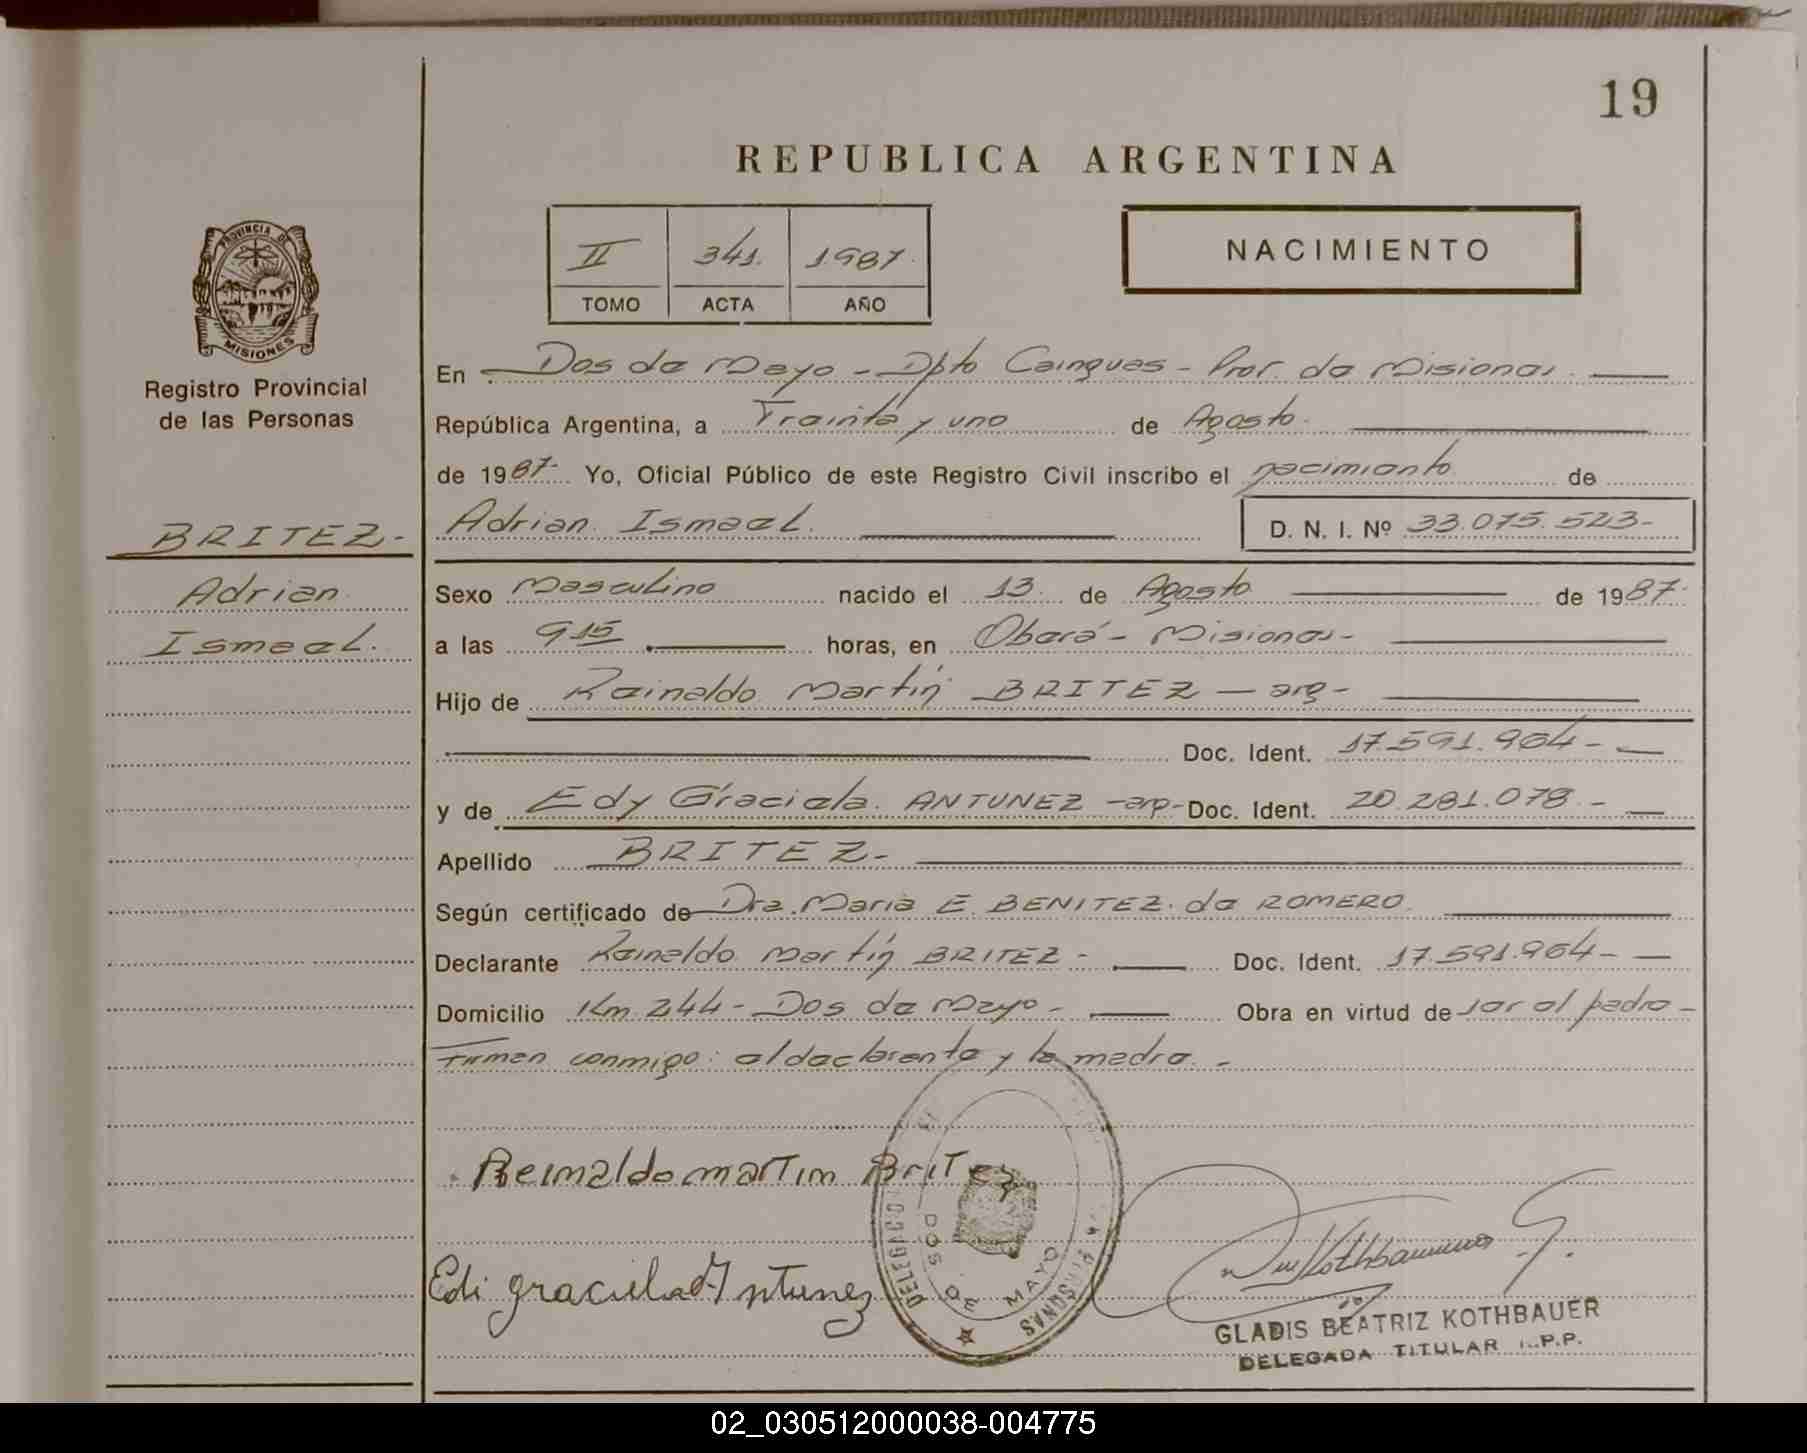 19
REPUBLICA ARGENTINA
II 341. 1987.
TOMO ACTA AÑO
NACIMIENTO
PROVINCIA DE
MISIONES
Registro Provincial
de las Personas
BRITEZ.-
Adrian
Ismael.
En Dos de Mayo - Dpto Cainguas - Prov. de Misiones.
República Argentina, a Treinta y uno de Agosto.
de 1987.- Yo, Oficial Público de este Registro Civil inscribo el nacimiento de
Adrian Ismael. D. N. I. Nº 33.075.523-
Sexo Masculino nacido el 13 de Agosto de 1987.
a las 915 horas, en Oberá - Misiones-
Hijo de Reinaldo Martín BRITEZ - arg-
Doc. Ident. 17.591.964-
y de Edy Graciela ANTUNEZ -arg- Doc. Ident. 20.281.078.-
Apellido BRITEZ-
Según certificado de Dra. Maria E. BENITEZ de ROMERO.
Declarante Reinaldo Martín BRITEZ- Doc. Ident. 17.591.964-
Domicilio Km 244 - Dos de Mayo- Obra en virtud de ser el padre-
Firman conmigo: el declarante y la madre.-
Reinaldo martin Britez
Edi graciela Antunez
DOS DE MAYO
PERSONAS
GLADIS BEATRIZ KOTHBAUER
DELEGADA TITULAR R.P.P.
02_030512000038-004775